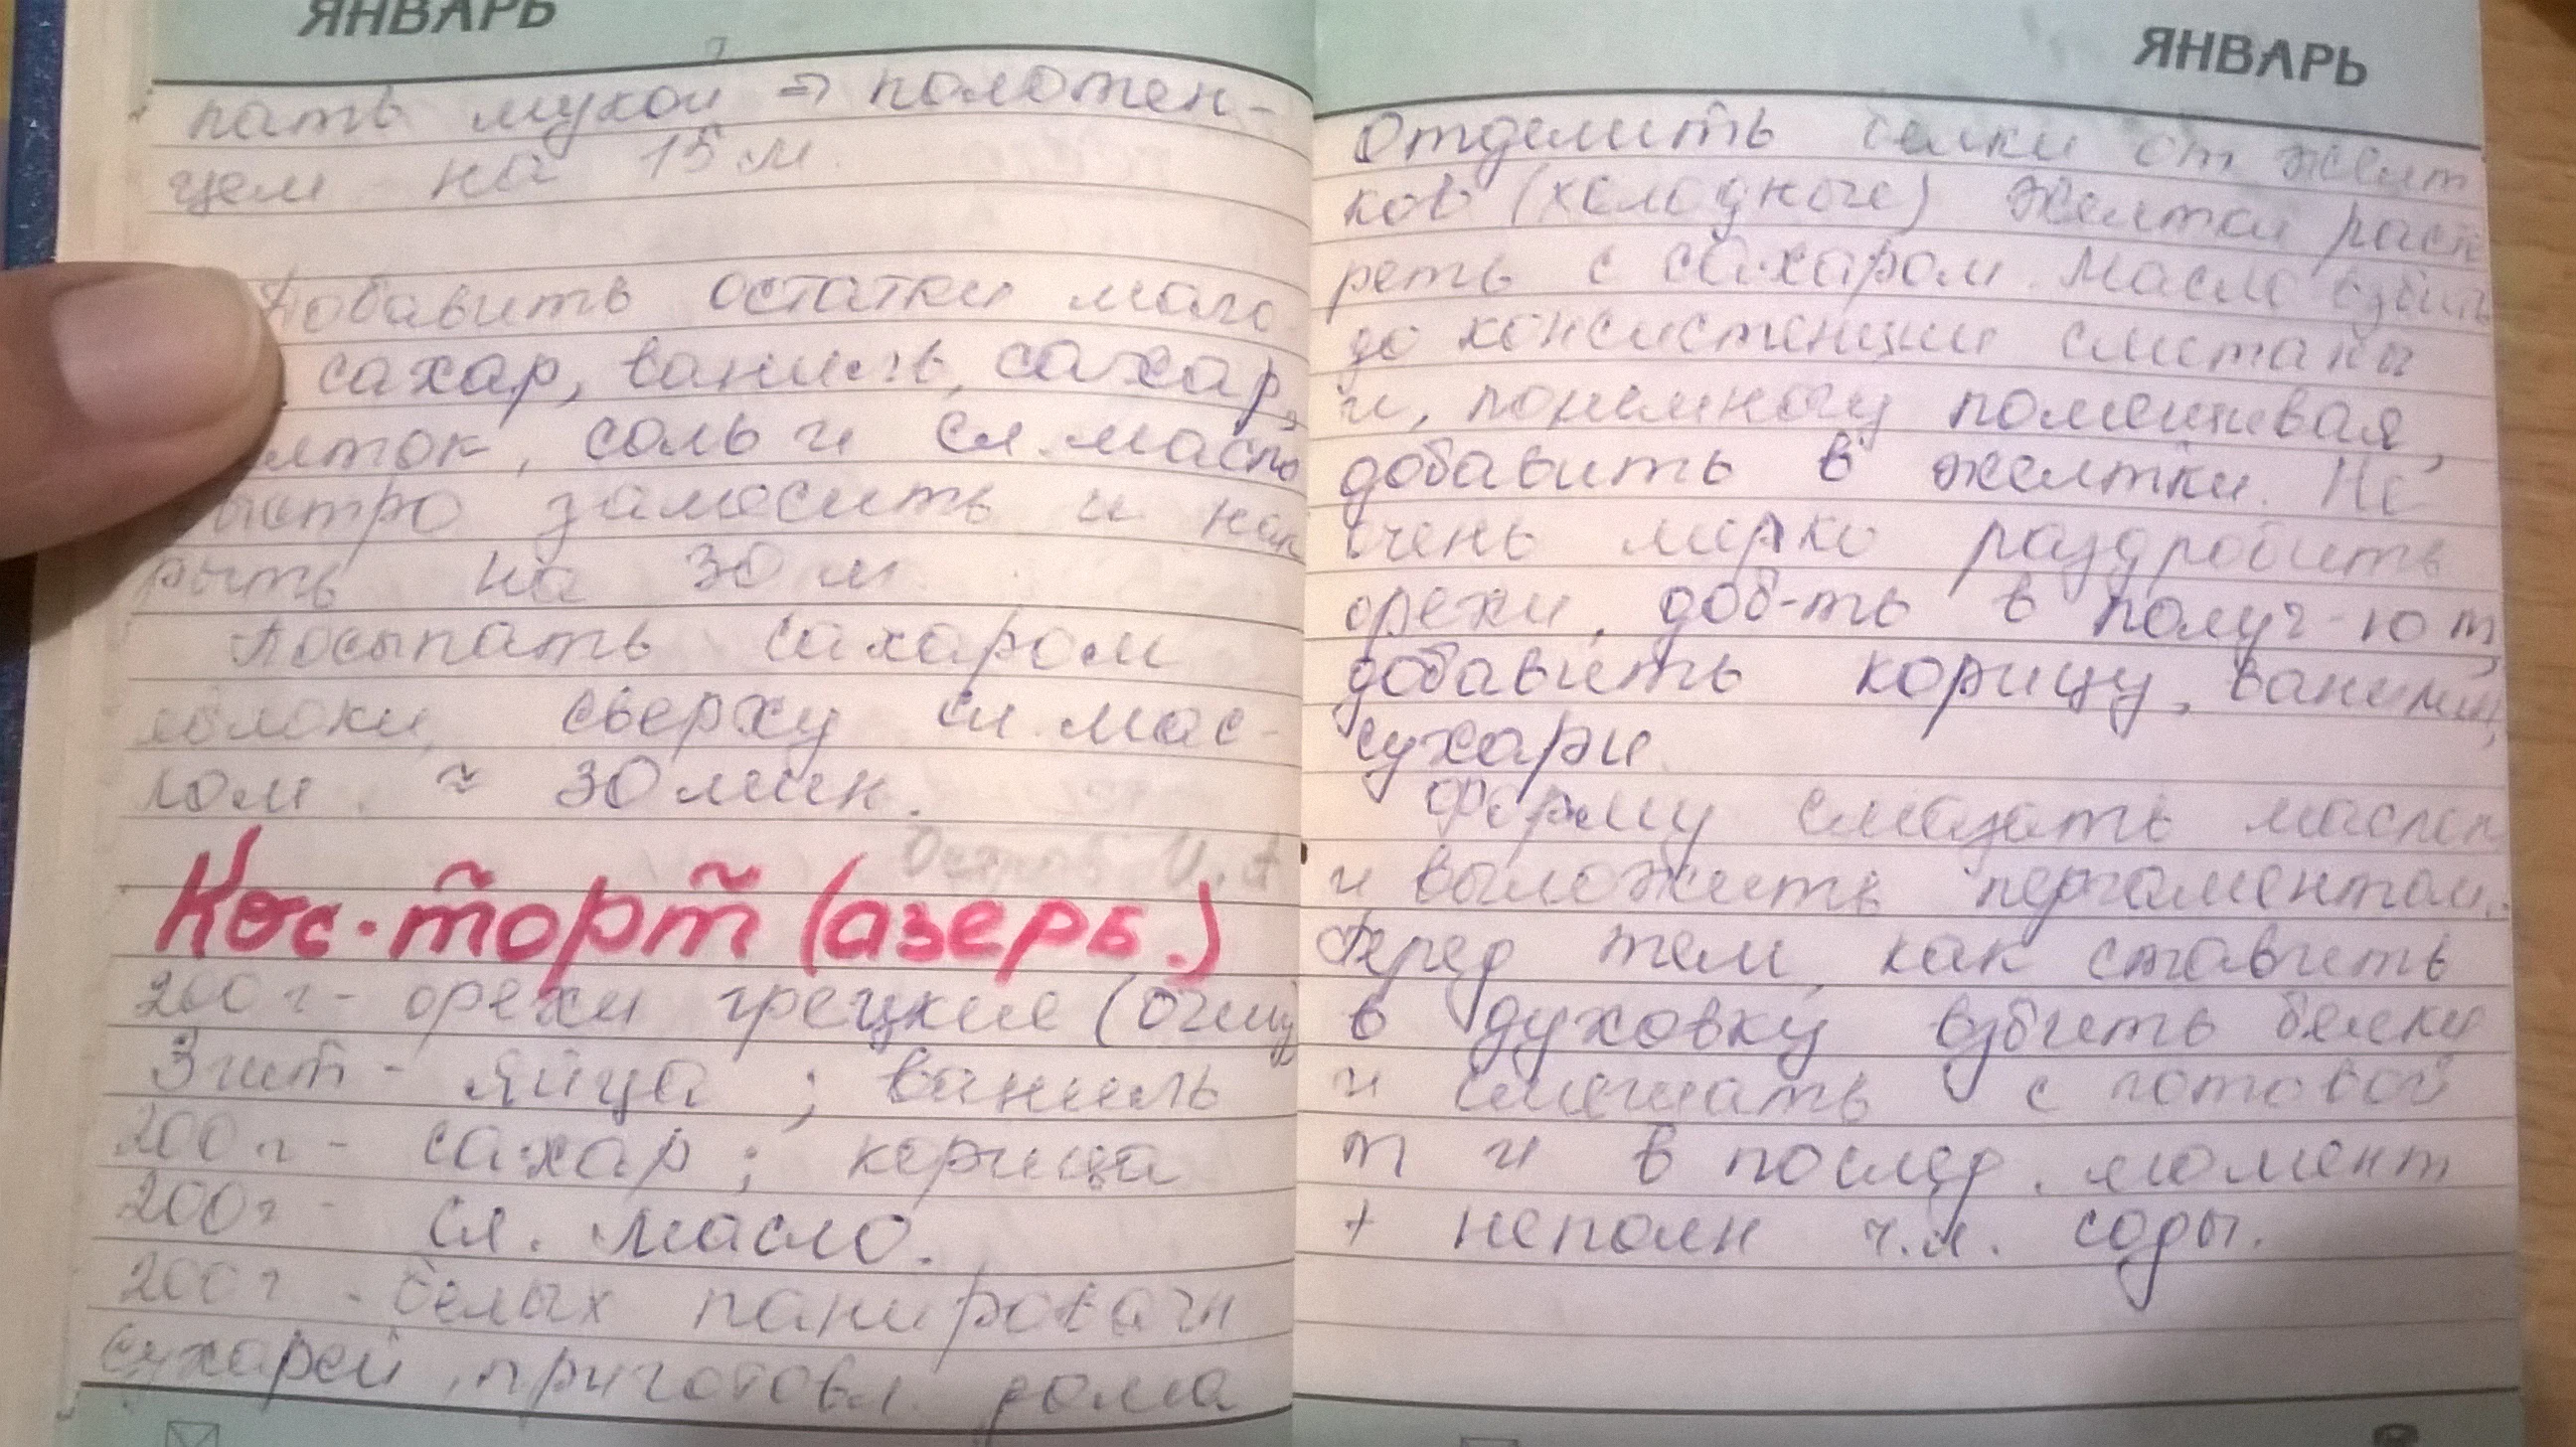 ЯНВАРЬ
пать мукой => полотен-
цем на 15 м.
Добавить остатки моло
сахар, ваниль, сахар,
лток, соль и сл. масло
ыстро замесить и нак
рыть на 30 м
Посыпать сахаром
яблоки, сверху сл. мас-
лом. ≈ 30 мин.
Кос-торт (азерб.)
200 г - орехи грецкие (очищ
3 шт - яйца ; ваниль
200 г - сахар ; корица
200 г - сл. масло.
200 г - белых панировачн
сухарей, приготовл. дома
ЯНВАРЬ
Отделить белки от желт
ков (холодные) Желтки раст
реть с сахаром. Масло взбить
до консистенции сметаны
и, понемногу помешивая,
добавить в желтки. Не
очень мелко раздробить
орехи, доб-ть в получ-ю т,
добавить корицу, ванилин,
сухари
Форму смазать маслом
и выложить пергаментом.
Перед тем, как ставить
в духовку взбить белки
и смешать с готовой
т и в послед. момент
+ неполн ч.л. соды.
8